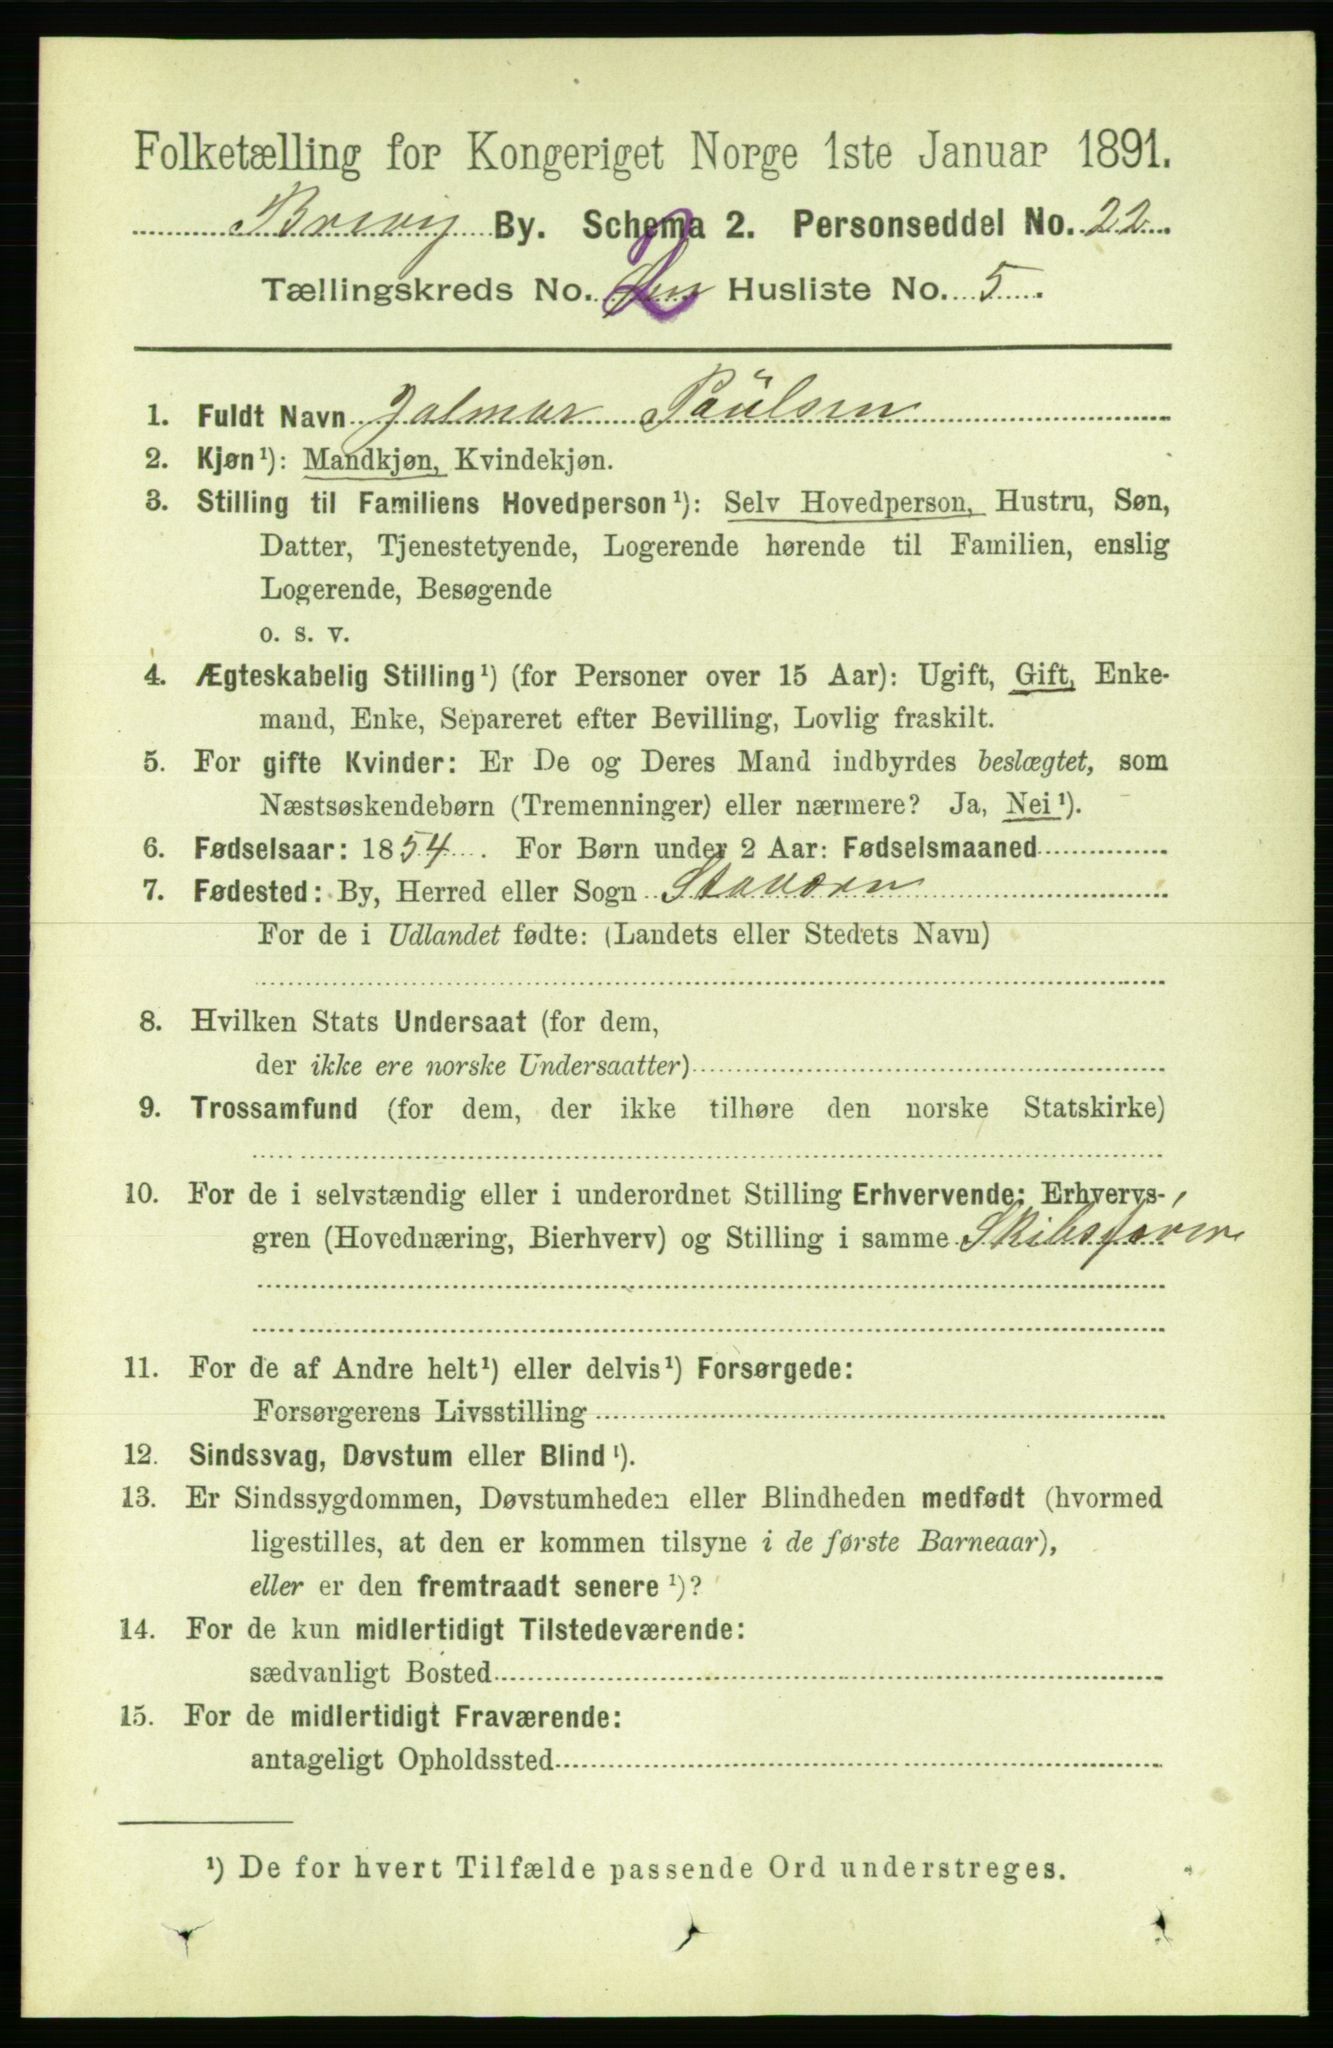 Folketælling for Kongeriget Norge 1ste Januar 1891.
Brevig By. Schema 2. Personseddel No. 22.
Tællingskreds No. 2 Husliste No. 5.
1. Fuldt Navn Jalmar Paülsen
2. Kjøn¹): Mandkjøn, Kvindekjøn.
3. Stilling til Familiens Hovedperson¹): Selv Hovedperson, Hustru, Søn,
Datter, Tjenestetyende, Logerende hørende til Familien, enslig
Logerende, Besøgende
o. s. v.
4. Ægteskabelig Stilling¹) (for Personer over 15 Aar): Ugift, Gift, Enke-
mand, Enke, Separeret efter Bevilling, Lovlig fraskilt.
5. For gifte Kvinder: Er De og Deres Mand indbyrdes beslægtet, som
Næstsøskendebørn (Tremenninger) eller nærmere? Ja, Nei¹).
6. Fødselsaar: 1854. For Børn under 2 Aar: Fødselsmaaned
7. Fødested: By, Herred eller Sogn Staværn
For de i Udlandet fødte: (Landets eller Stedets Navn)
8. Hvilken Stats Undersaat (for dem,
der ikke ere norske Undersaatter)
9. Trossamfund (for dem, der ikke tilhøre den norske Statskirke)
10. For de i selvstændig eller i underordnet Stilling Erhvervende: Erhvervs-
gren (Hovednæring, Bierhverv) og Stilling i samme Skibsfører
11. For de af Andre helt¹) eller delvis¹) Forsørgede:
Forsørgerens Livsstilling
12. Sindssvag, Døvstum eller Blind¹).
13. Er Sindssygdommen, Døvstumheden eller Blindheden medfødt (hvormed
ligestilles, at den er kommen tilsyne i de første Barneaar),
eller er den fremtraadt senere¹)?
14. For de kun midlertidigt Tilstedeværende:
sædvanligt Bosted
15. For de midlertidigt Fraværende:
antageligt Opholdssted
¹) De for hvert Tilfælde passende Ord understreges.